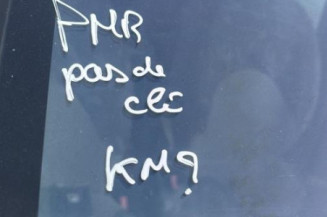 PMR
pas de
clé
KM?